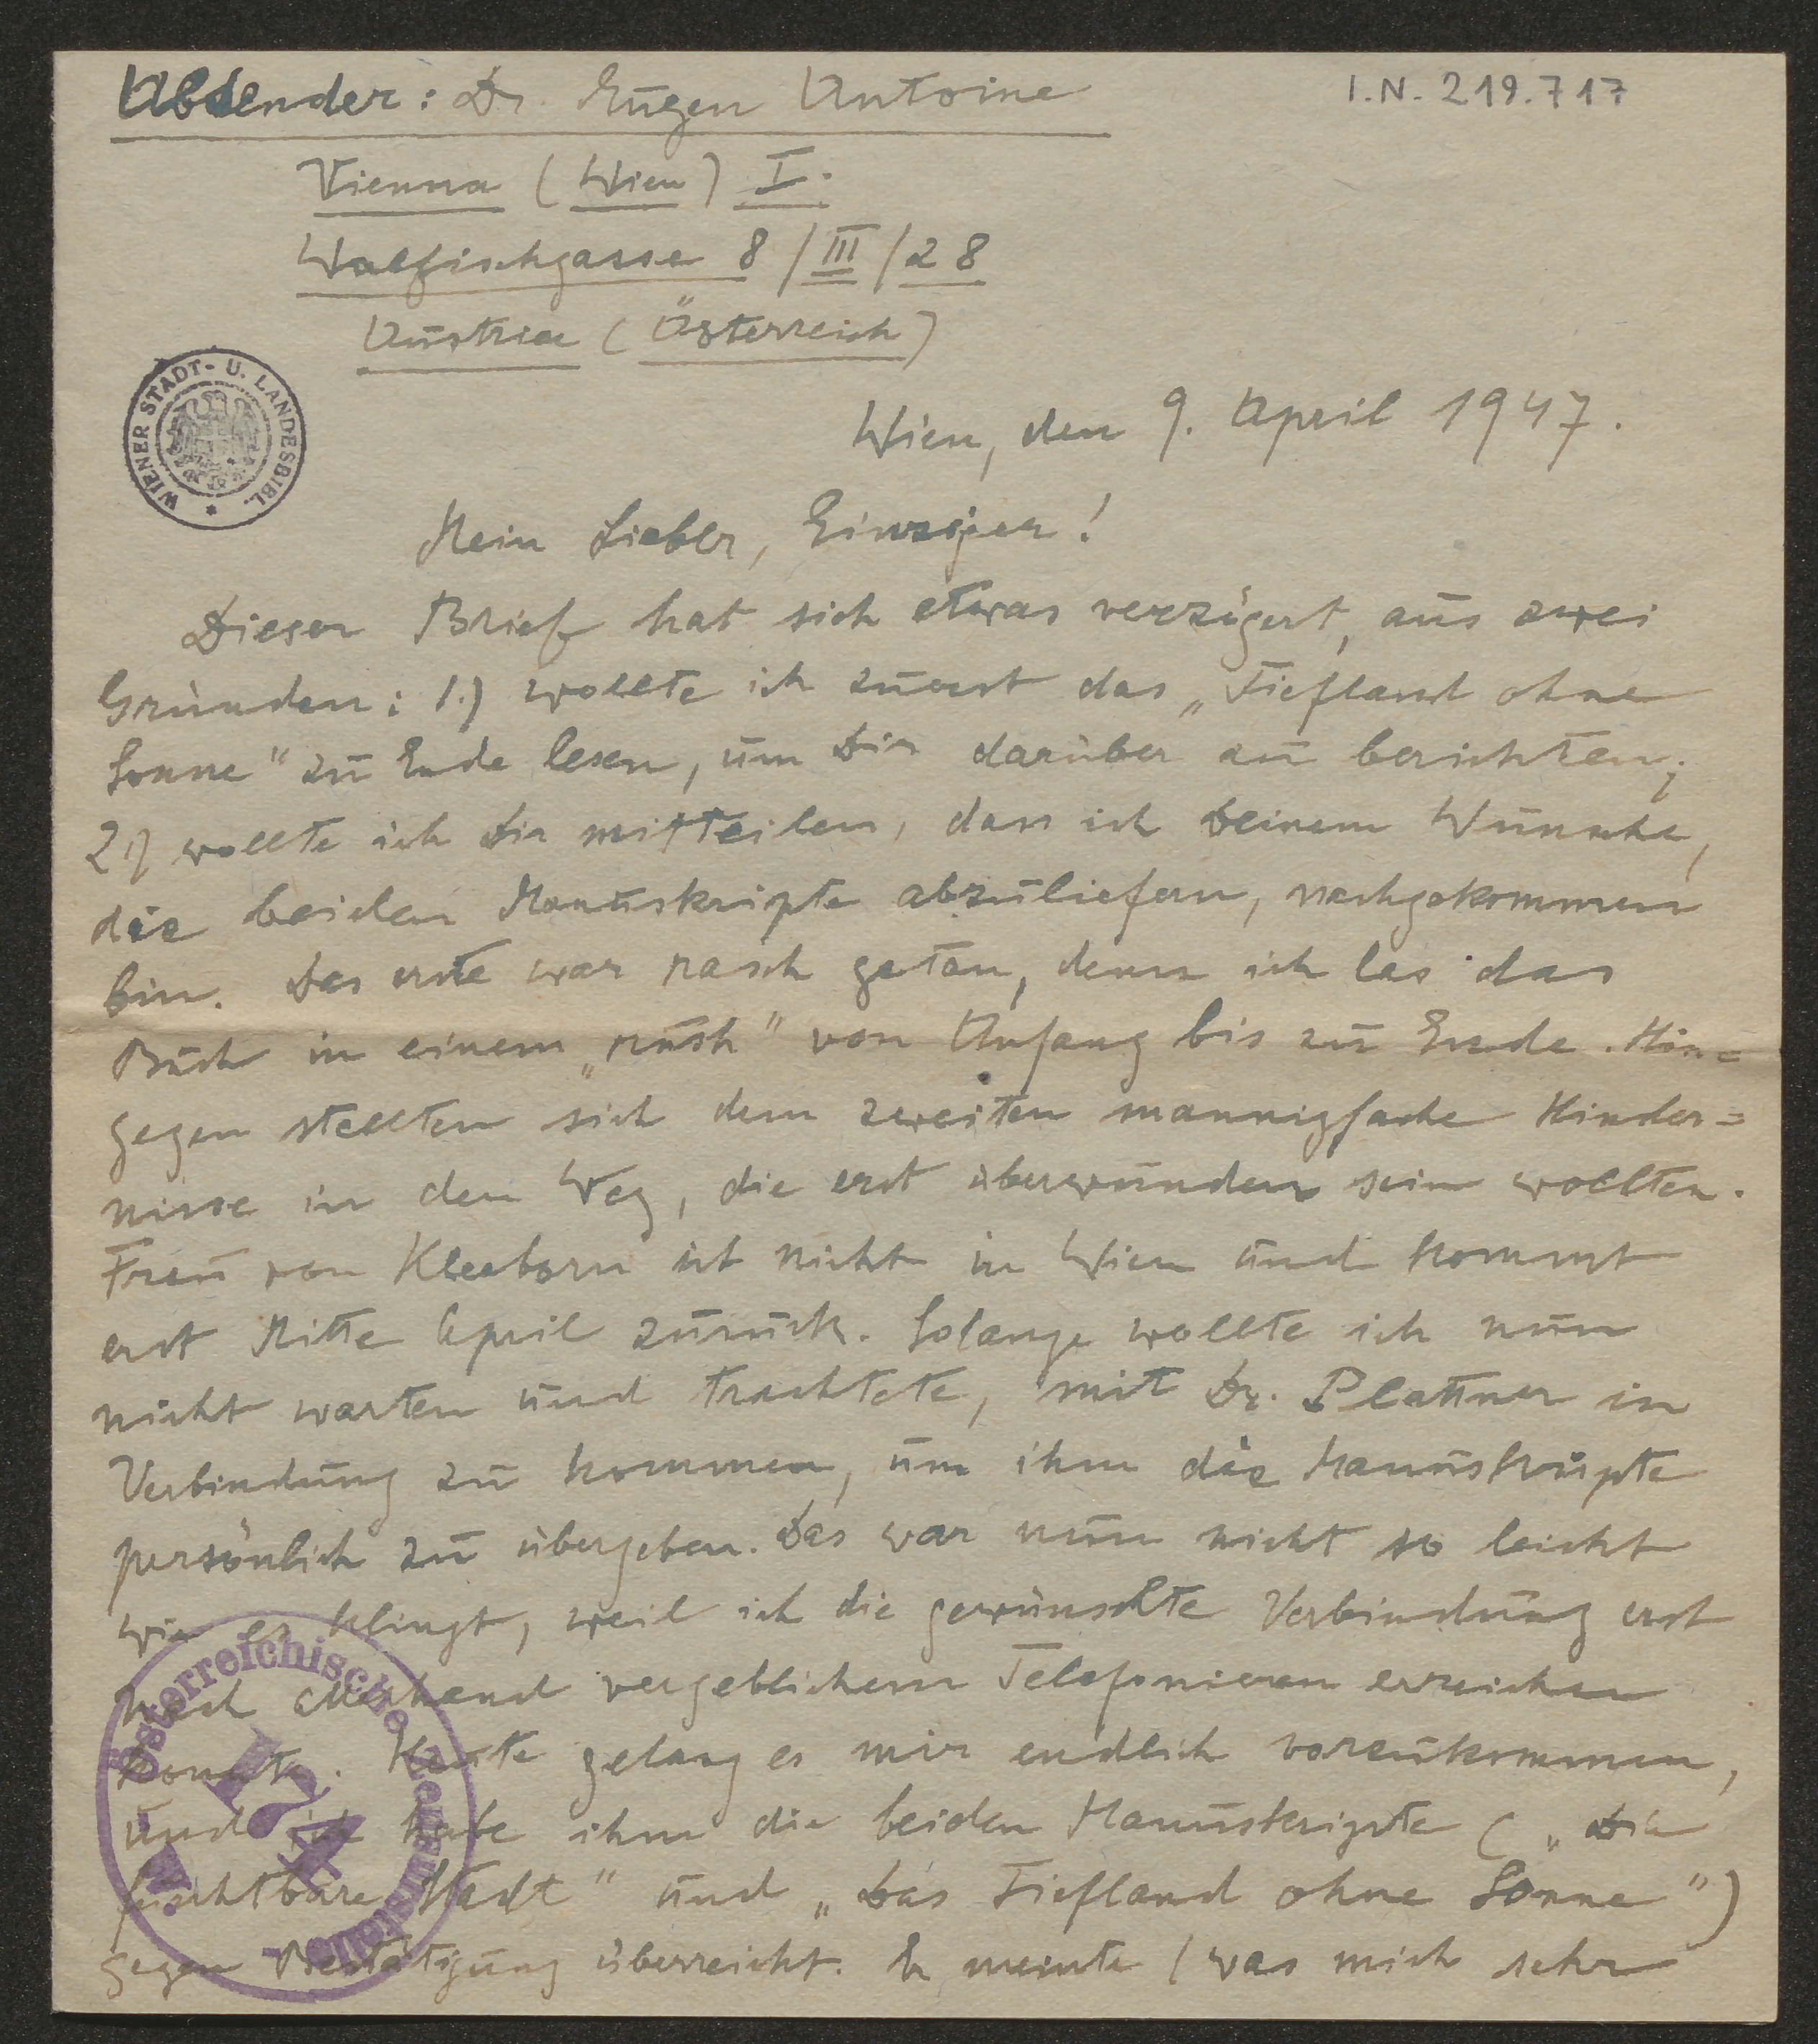 Absender: Dr. Eugen Antoine
I.N. 219.717
Vienna (Wien) I.
Walfischgasse 8/III/28
Austria (Österreich)
WIENER STADT- U. LANDESBIBL.
Wien, den 9. April 1947.
Mein Lieber, Einziger!
Dieser Brief hat sich etwas verzögert, aus zwei
Gründen: 1.) wollte ich zuerst das „Tiefland ohne
Sonne" zu Ende lesen, um Dir darüber zu berichten;
2.) wollte ich Dir mitteilen, dass ich Deinem Wunsche,
die beiden Manuskripte abzuliefern, nachgekommen
bin. Das erste war rasch getan, denn ich las das
Buch in einem „rush" von Anfang bis zu Ende. Hin=
gegen stellten sich dem zweiten mannigfache Hinder=
nisse in den Weg, die erst überwunden sein wollten.
Frau von Kleeborn ist nicht in Wien und kommt
erst Mitte April zurück. Solange wollte ich nun
nicht warten und trachtete, mit Dr. Plattner in
Verbindung zu kommen, um ihm die Manuskripte
persönlich zu übergeben. Das war nun nicht so leicht
wie es klingt, weil ich die gewünschte Verbindung erst
nach allerhand vergeblichem Telefonieren erreichen
konnte. Heute gelang es mir endlich vorzukommen,
und ich habe ihm die beiden Manuskripte („Die
furchtbare Stadt" und „Das Tiefland ohne Sonne")
gegen Bestätigung überreicht. Er meinte (was mich sehr
Österreichische Zensurstelle
174